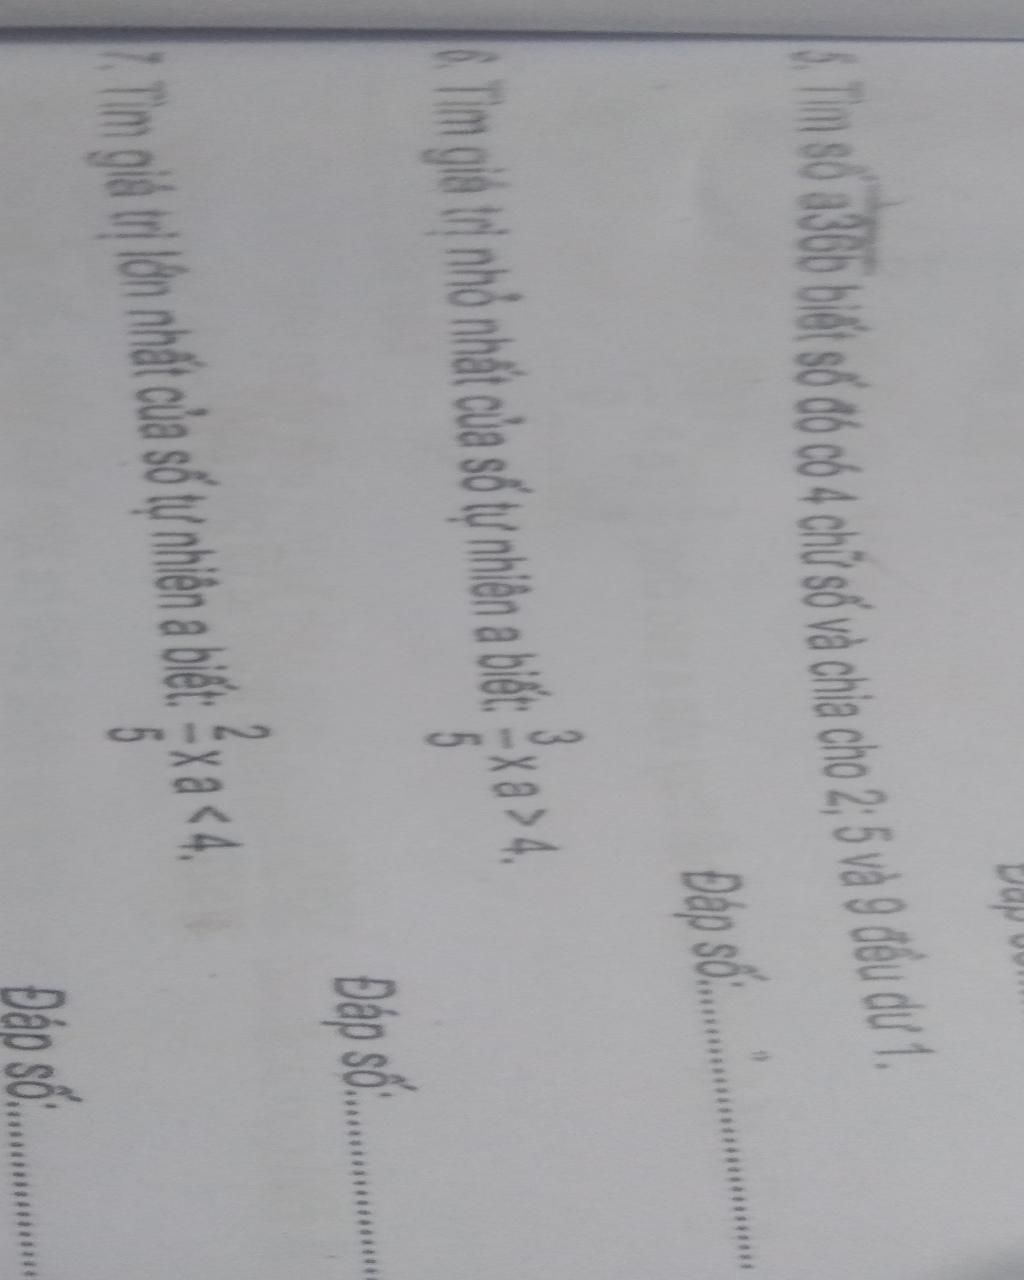 5. Tìm số a36b biết số đó có 4 chữ số và chia cho 2; 5 và 9 đều dư 1.
Đáp số:........................
6. Tìm giá trị nhỏ nhất của số tự nhiên a biết: 3/5 x a > 4.
Đáp số:................
7. Tìm giá trị lớn nhất của số tự nhiên a biết: 2/5 x a < 4.
Đáp số:................